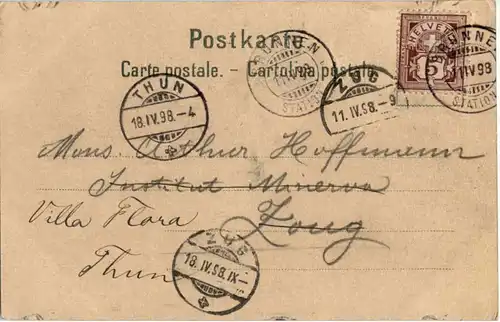 Postkarte.
Carte postale. - Cartolina postale.
HELVETIA
BRUNNEN
IV 98
STATION
BRUNNEN
IV 98
STATION
THUN
18.IV.98.-4
ZUG
11.IV.98.-9
Mons. Arthur Hoffmann
Institut Minerva
Villa Flora Zoug
Thun
ZUG
18.IV.98.IX-